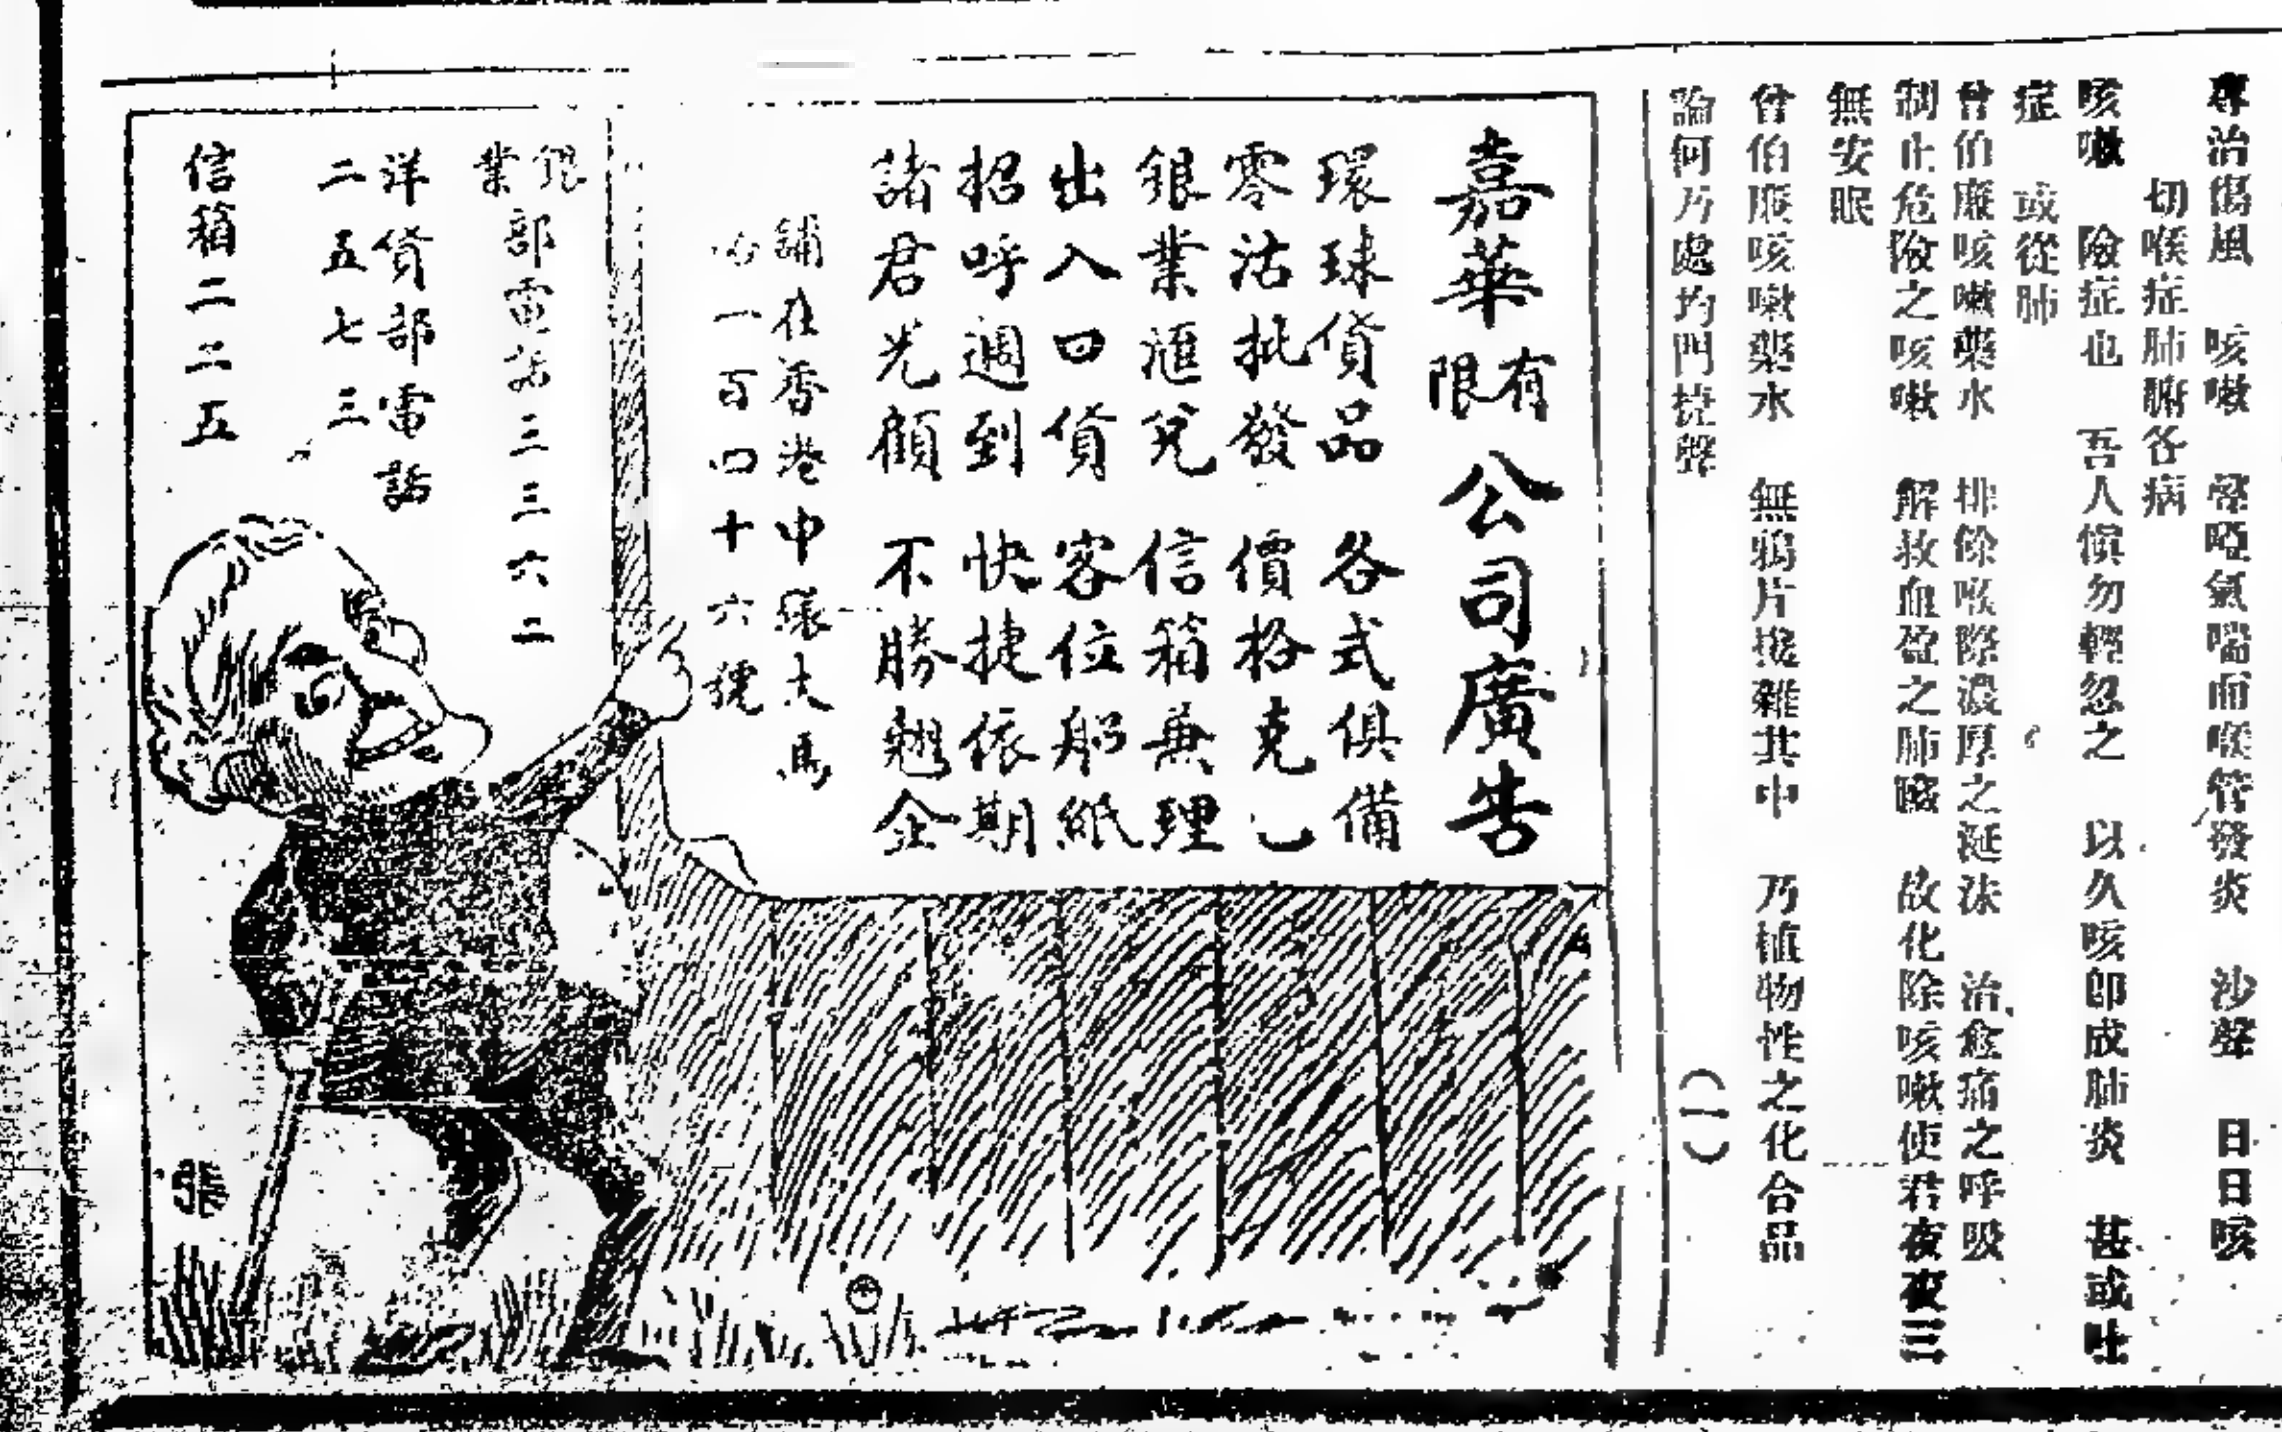 專治傷風　咳嗽　聲啞氣喘而喉管發炎　沙聲　日日咳
切喉症肺腑各病
咳嗽　險症也　吾人慎勿輕忽之　以久咳即成肺炎　甚或吐
症　或從肺
曾伯廉咳嗽藥水　排除喉際濃厚之涎沫　治愈痛之呼吸
制止危險之咳嗽　解救血盈之肺臟　故化除咳嗽使君夜夜三
無安眠
曾伯廉咳嗽藥水　無鴉片攙雜其中　乃植物性之化合品
論何乃處均門捷聲
(一)
嘉華有限公司廣告
環球貨品　各式俱備
零沽批發　價格克己
銀業滙兌　信箱兼理
出入口貨　客位船紙
招呼週到　快捷依期
諸君光顧　不勝翹企
舖在香港中環大馬
路一百四十六號
銀業部電話三三六二
洋貨部電話
二五七三
信箱二二五
張